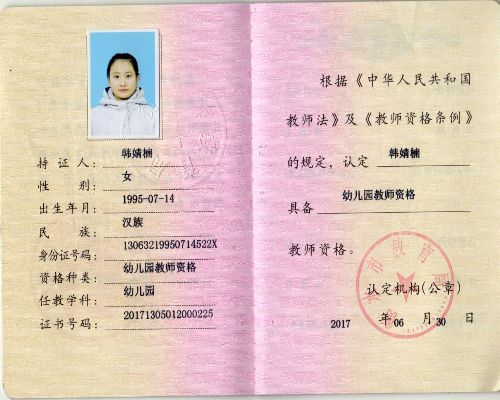 持证人： 韩婧楠
性别： 女
出生年月： 1995-07-14
民族： 汉族
身份证号码： 13063219950714522X
资格种类： 幼儿园教师资格
任教学科： 幼儿园
证书号码： 20171305012000225
根据《中华人民共和国
教师法》及《教师资格条例》
的规定，认定 韩婧楠
具备 幼儿园教师资格
教师资格。
市教育局
认定机构(公章)
2017 年 06 月 30 日